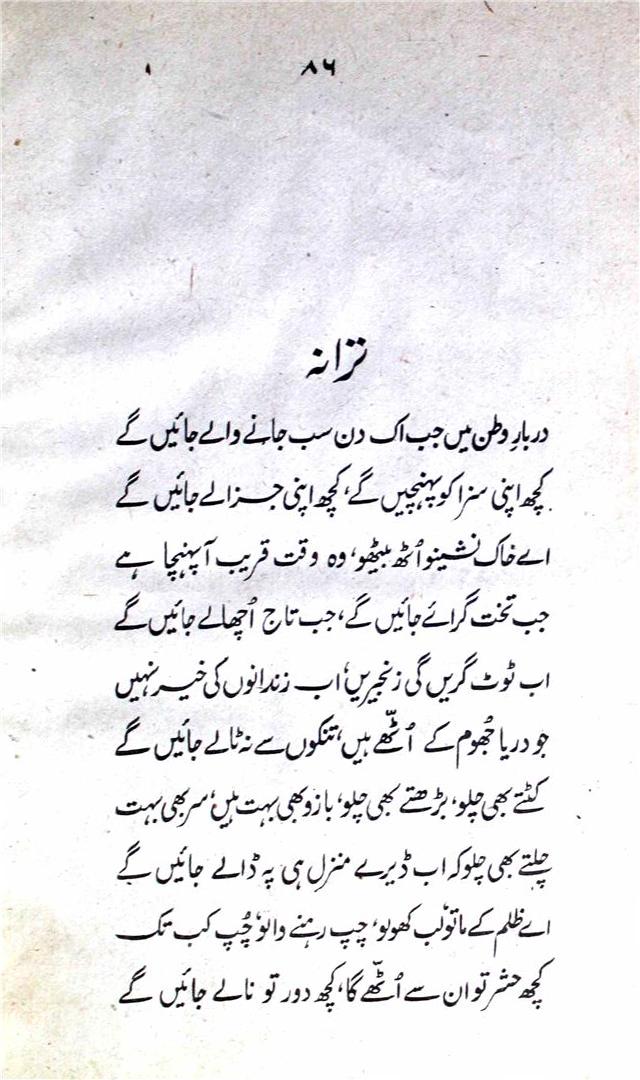 ۸۶
ترانہ
دربارِ وطن میں جب اک دن سب جانے والے جائیں گے
کچھ اپنی سزا کو پہنچیں گے، کچھ اپنی جزا لے جائیں گے
اے خاک نشینو اُٹھ بیٹھو، وہ وقت قریب آ پہنچا ہے
جب تخت گرائے جائیں گے، جب تاج اُچھالے جائیں گے
اب ٹوٹ گریں گی زنجیریں، اب زندانوں کی خیر نہیں
جو دریا جُھوم کے اُٹّھے ہیں، تنکوں سے نہ ٹالے جائیں گے
کٹتے بھی چلو، بڑھتے بھی چلو، بازو بھی بہت ہیں، سر بھی بہت
چلتے بھی چلو کہ اب ڈیرے منزل ہی پہ ڈالے جائیں گے
اے ظلم کے ماتو، لب کھولو، چپ رہنے والو، چُپ کب تک
کچھ حشر تو ان سے اُٹّھے گا، کچھ دور تو نالے جائیں گے